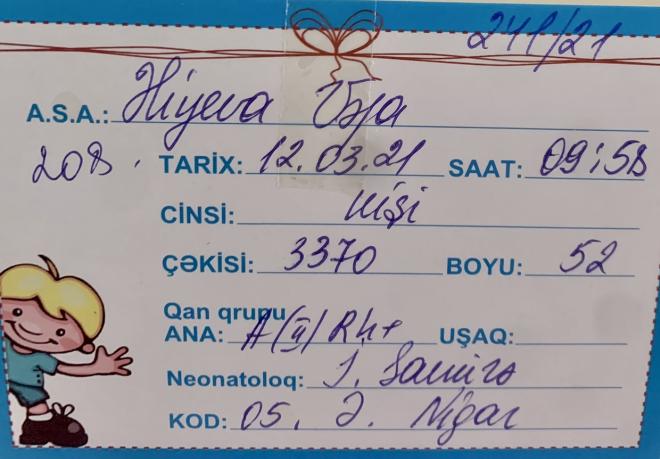 241/21
A.S.A.: Əliyeva Üzya
208. TARİX: 12.03.21 SAAT: 09:58
CİNSİ: kişi
ÇƏKİSİ: 3370 BOYU: 52
Qan qrupu
ANA: A(II) Rh+ UŞAQ:
Neonatoloq: Samirə
KOD: 05. Ə. Nigar